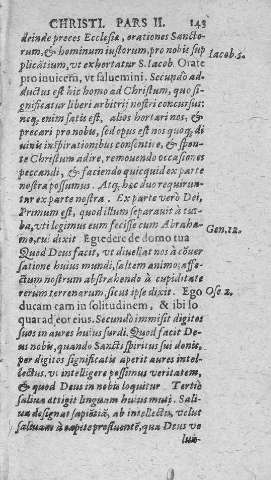 CHRISTI. PARS II. 143
deinde preces Ecclesiæ, orationes Sancto-
rum, & hominum iustorum, pro nobis sup
plicãtium, vt exhortatur S. Iacob. Orate Iacob. 5.
pro inuicem, vt saluemini. Secundò ad-
ductus est hic homo ad Christum, quo si-
gnificatur liberi arbitrij nostri concursus:
neq; enim satis est, alios hortari nos, &
precari pro nobis, sed opus est nos quoq; di
uinis inspirationibus consentire, & spon-
te Christum adire, remouendo occasiones
peccandi, & faciendo quicquid ex parte
nostra possumus. Atq; hæc duo requirun-
tur ex parte nostra. Ex parte verò Dei,
Primum est, quod illum separauit à tur-
ba, vti legimus eum fecisse cum Abraha-
mo, cui dixit. Egredere de domo tua Gen. 12.
Quod Deus facit, vt diuellat nos à cõuer
satione huius mundi, saltem animo; affe-
ctum nostrum abstrahendo à cupiditate
rerum terrenarum, sicut ipse dixit. Ego Ose. 2.
ducam eam in solitudinem, & ibi lo
quar ad cor eius. Secundò immisit digitos
suos in aures huius surdi. Quod facit De-
us nobis, quando Sancti spiritus sui donis,
per digitos significatis aperit aures intel-
lectus, vt intelligere possimus veritatem,
& quod Deus in nobis loquitur. Tertiò
saliua attigit linguam huius muti. Sali-
ua designat sapiẽtiã, ab intellectu, velut
saliuam à capite profluentẽ, qua Deus vo
lun-